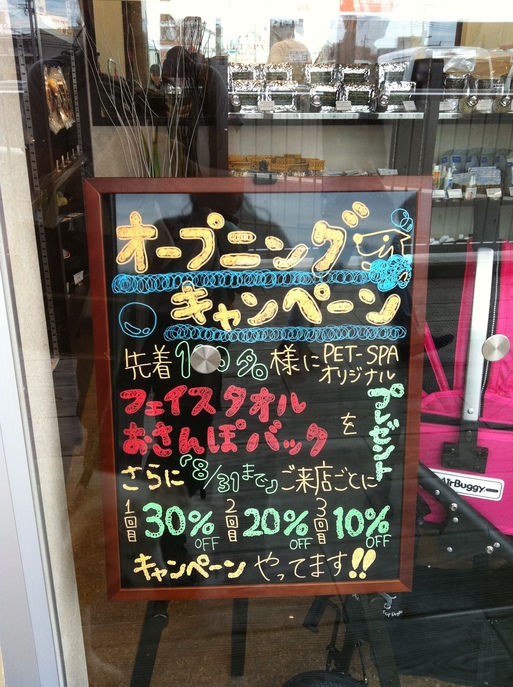 オープニング
キャンペーン
先着100名様にPET-SPA
オリジナル
フェイスタオル
おさんぽバック
を
プレゼント
さらに「8/31まで」ご来店ごとに
1回目 30%OFF 2回目 20%OFF 3回目 10%OFF
キャンペーン やってます!!
AirBuggy